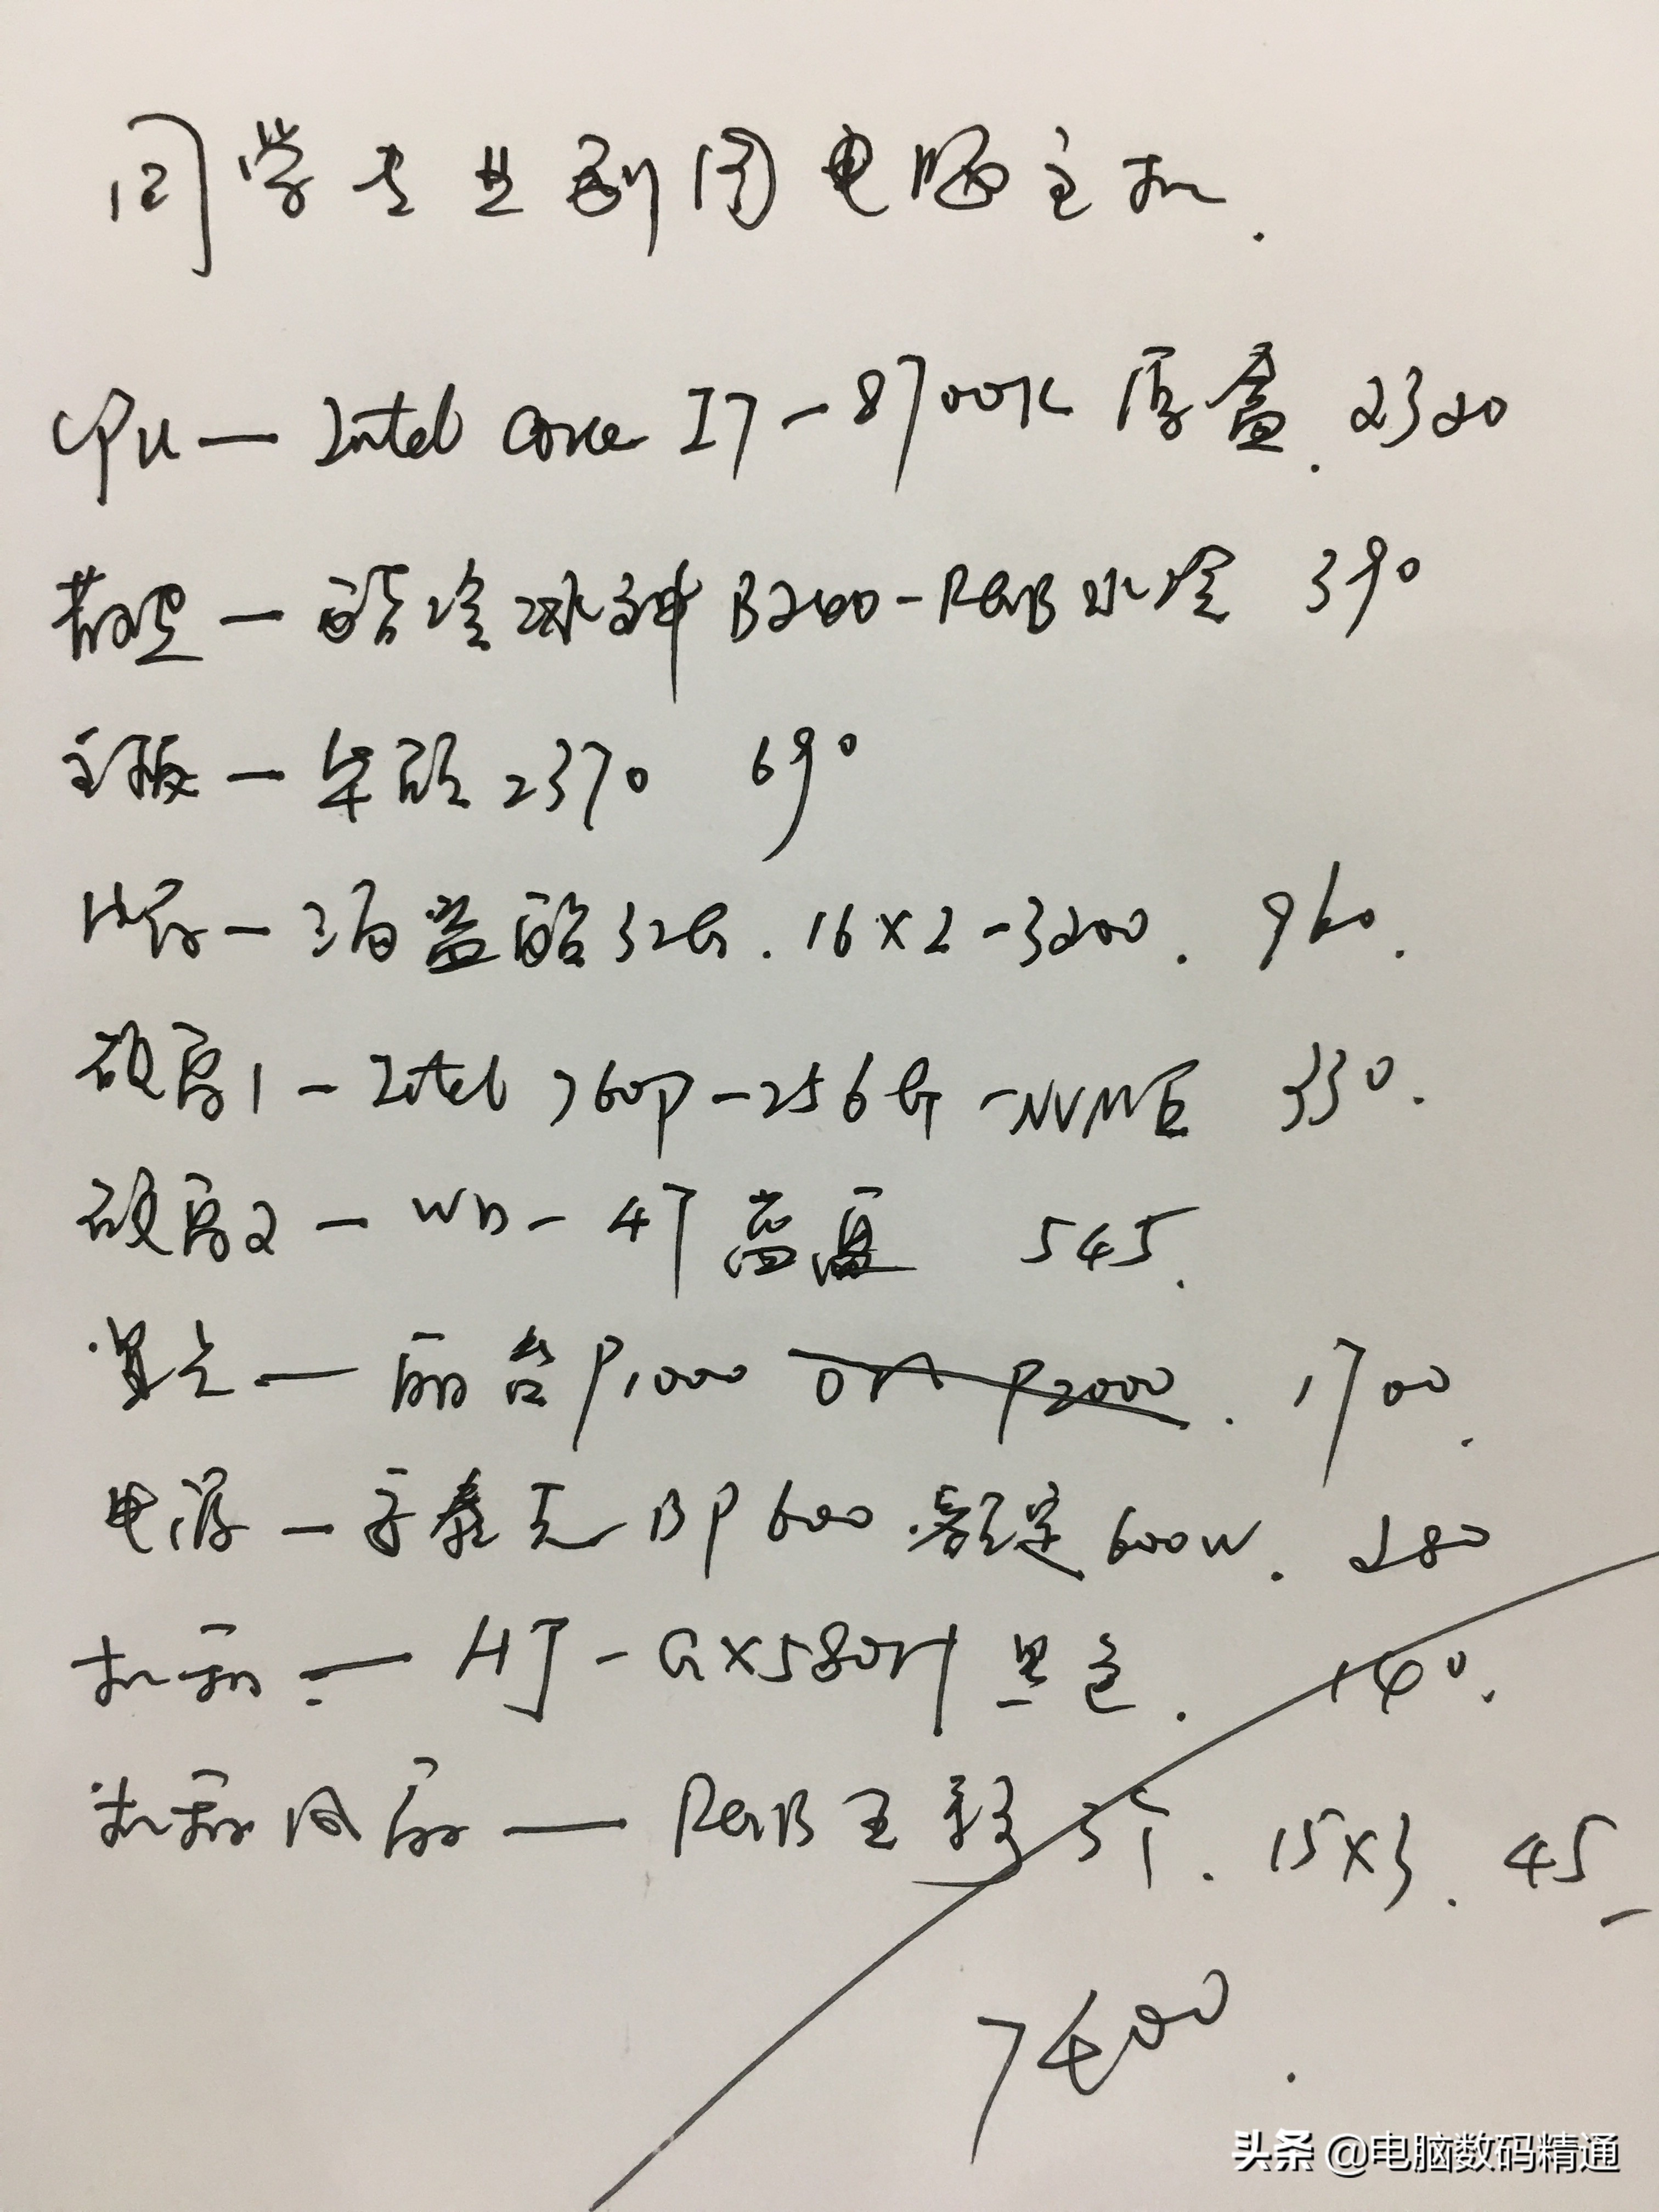 同学专业制图电脑主机.
CPU — Intel Core I7-8700K 原盒. 2320
散热 — 酷冷冰神 B240-RGB 水冷 390
主板 — 华硕 Z370 690
内存 — 三佰益酷 32G. 16×2-3200. 960.
硬盘1 — Intel 760P-256G-NVME 330.
硬盘2 — WD-4T 蓝盘 545.
显卡 — 丽台 P1000 or P2000. 1700.
电源 — 安泰克 BP600 额定 600W. 280
机箱 — HJ-GX580H 黑色. 140.
机箱风扇 — RGB 3个. 15×3. 45
7400.
头条 @电脑数码精通